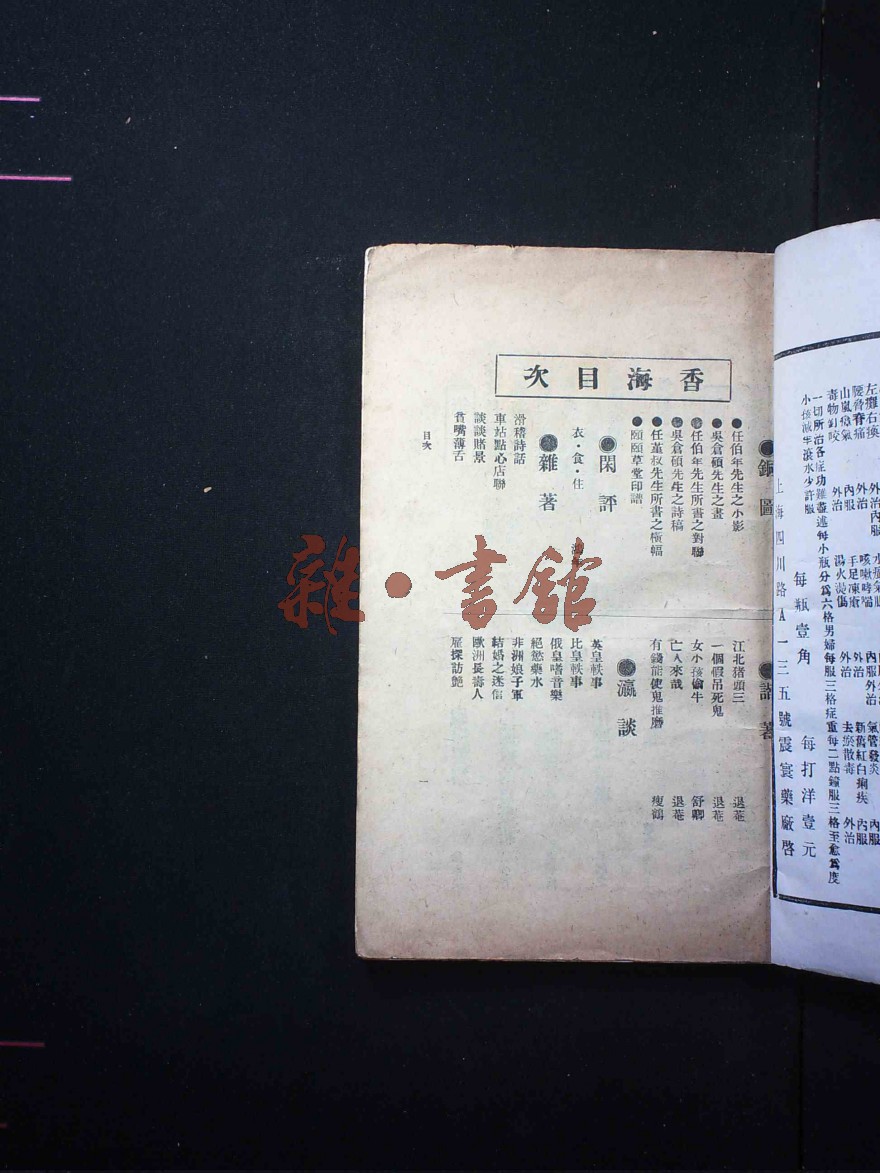 香海目次
銅圖
●任伯年先生之小影
●吳倉碩先生之畫
●任伯年先生所書之對聯
●吳倉碩先生之詩稿
●任堇叔先生所書之橫幅
●頤頤草堂印譜
●閑評
衣·食·住
●雜著
滑稽詩話
車站點心店聯
談談賭景
貧嘴薄舌
著
江北猪頭三 退菴
一個假吊死鬼 退菴
女小孩偷牛 舒卿
亡人來哉 退菴
有錢能使鬼推磨 瘦鶴
●瀛談
英皇軼事
比皇軼事
俄皇嗜音樂
絕慾藥水
非洲娘子軍
結婚之迷信
歐洲長壽人
雇探訪艷
目次
一
雜·書館
水
咳嗽哮喘 內服
手足凍瘡 外治
湯火燙傷 外治
氣管發炎 內服
新舊紅白痢疾 內服
去瘀散毒 外治
左癱右瘓
腰脊痛
山嵐瘴氣 內服
毒物釘咬 外治
一切所治各症功難盡述每小瓶分爲六格男婦每服三格症重每二點鐘服三格至愈爲度
小孩減半滾水少許服
每瓶壹角 每打洋壹元
上海四川路A一三五號震寰藥廠啓